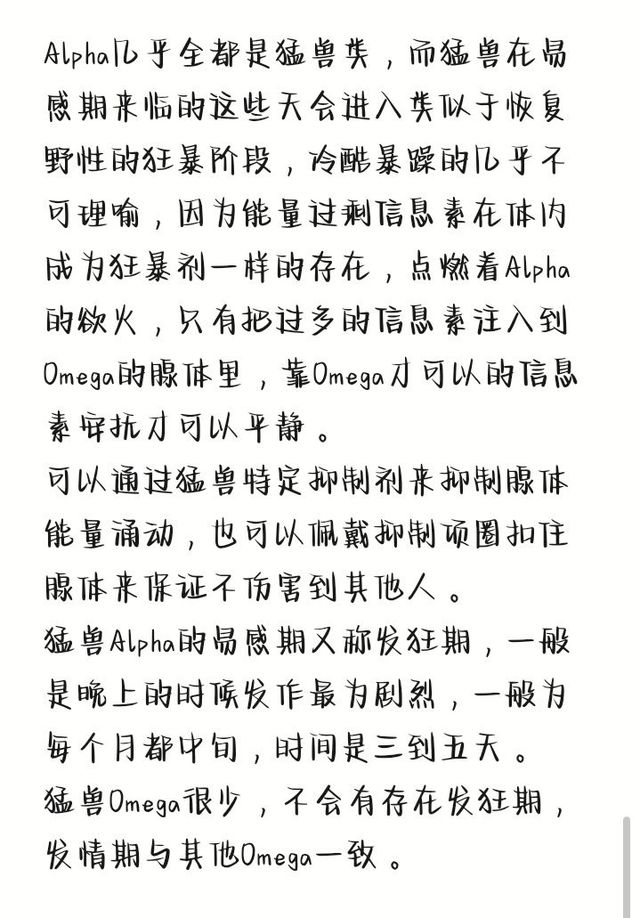 Alpha几乎全都是猛兽类，而猛兽在易
感期来临的这些天会进入类似于恢复
野性的狂暴阶段，冷酷暴躁的几乎不
可理喻，因为能量过剩信息素在体内
成为狂暴剂一样的存在，点燃着Alpha
的欲火，只有把过多的信息素注入到
Omega的腺体里，靠Omega才可以的信息
素安抚才可以平静。
可以通过猛兽特定抑制剂来抑制腺体
能量涌动，也可以佩戴抑制项圈扣住
腺体来保证不伤害到其他人。
猛兽Alpha的易感期又称发狂期，一般
是晚上的时候发作最为剧烈，一般为
每个月都中旬，时间是三到五天。
猛兽Omega很少，不会有存在发狂期，
发情期与其他Omega一致。